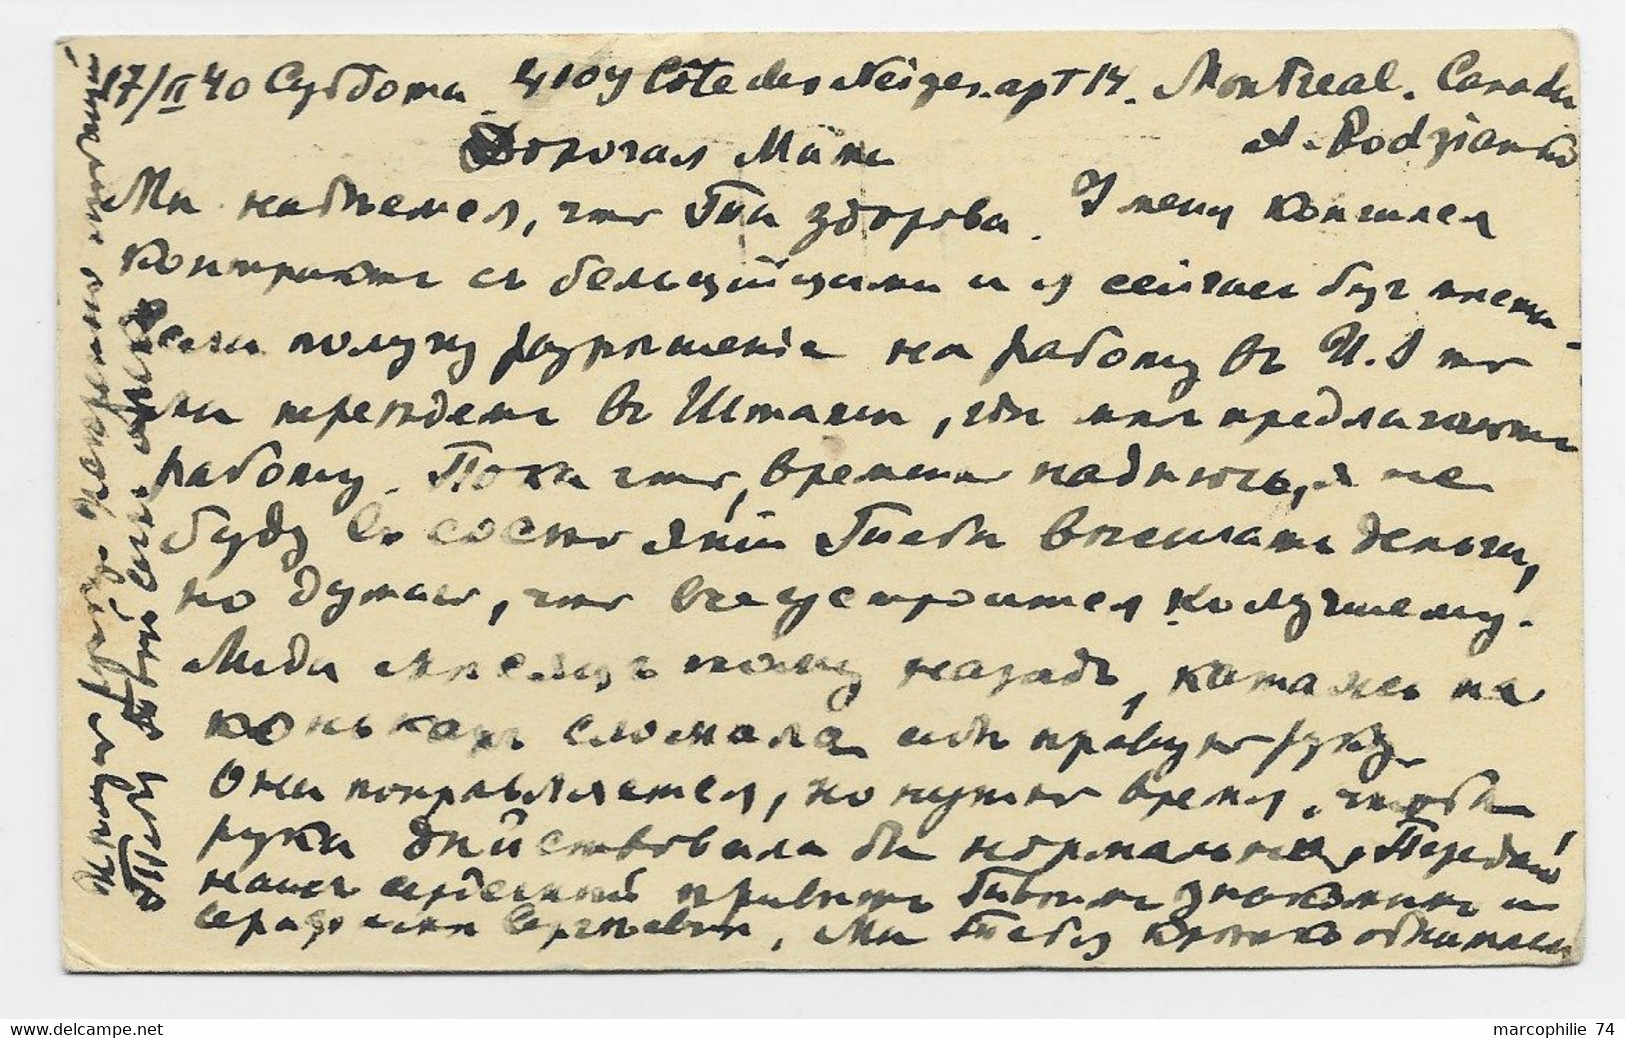 17/II 40 Суббота. 4109 Côte des Neiges. apt 14. Montreal. Canada
A. Rodzianko
Дорогая Мама
Мы надѣемся, что Ты здорова. У меня кончился
контрактъ съ бельгійцами и я сейчасъ безъ мѣста
Если получу разрѣшеніе на работу въ U.S то
мы переѣдемъ въ Штаты, гдѣ мнѣ предлагаютъ
работу. Пока что, временно надѣюсь, я не
буду въ состояніи Тебѣ высылать деньги,
но думаю, что все устроится къ лучшему.
мѣсяцъ тому назадъ, катаясь на
конькахъ сломала себѣ правую руку.
Она поправляется, но нужно время, чтобы
рука дѣйствовала бы нормально. Передай
нашъ сердечный привѣтъ знакомымъ и
Серафимѣ Сергѣевнѣ, Мы Тебя крѣпко обнимаемъ
marcophilie 74